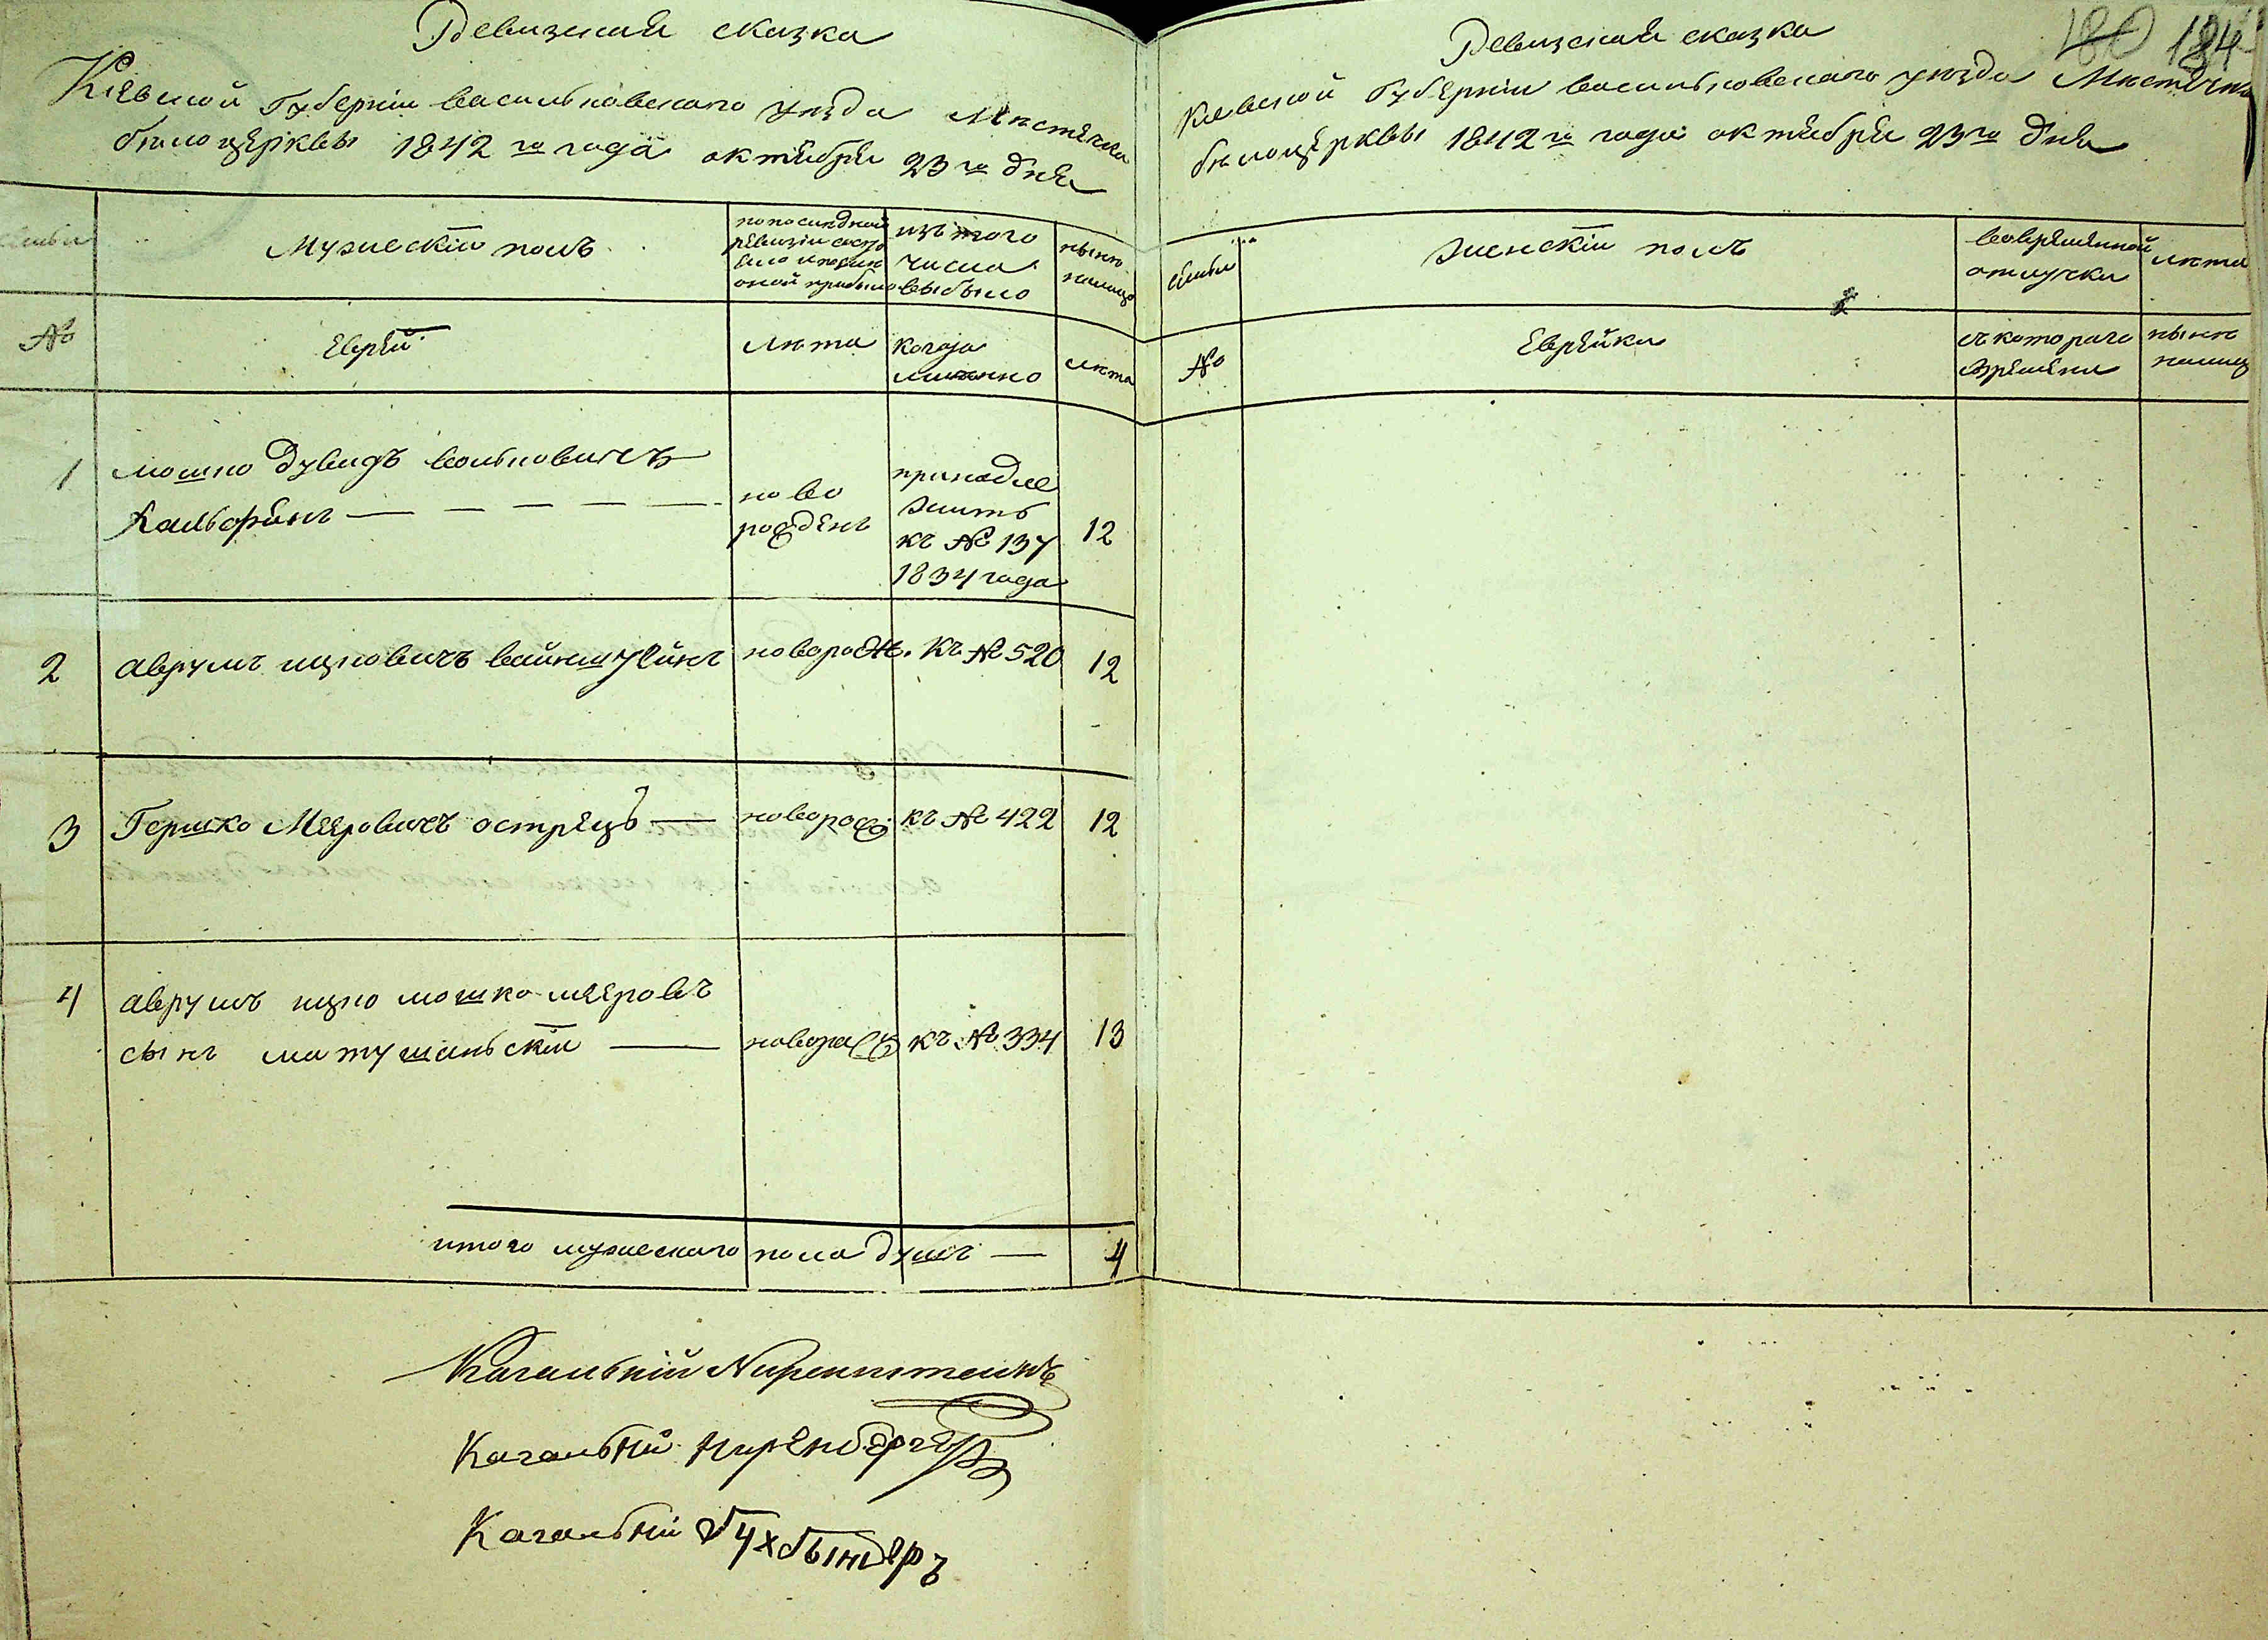 Ревизская сказка
Кіевской Губерніи васильковскаго уезда Местечка
белоцерквы 1842 го года октября 23 го дня
семьи
Мужескій полъ
по последной
ревизіи состо
яло и после
оной прибыло
изъ того
числа
выбыло
ныне
налицо
№
Еврей
лета
когда
именно
лета
1
мошко дувидъ вольковичъ
Кальфинъ
ново
рожденъ
принадле
житъ
къ № 137
1834 года
12
2
аврумъ ицковичъ вайнштейнъ
новорож.
къ № 520
12
3
Гершко Мееровичъ острецъ
новорож
къ № 422
12
4
аврумъ ицко мошко-мееровъ
сынъ матушаньскій
новорож
къ № 334
13
итого мужескаго пола душъ
4
Кагальній Миренштейнъ
Кагальній Ниренбергеръ
Кагальній Бухбындеръ
180 184
Ревизская сказка
Киевской Губерніи васильковскаго уезда Местечка
белоцерквы 1842 го года октября 23 го дня
семьи
Женскій полъ
вовременной
отлучки
лета
№
Еврейки
съ котораго
времени
ныне
налиц